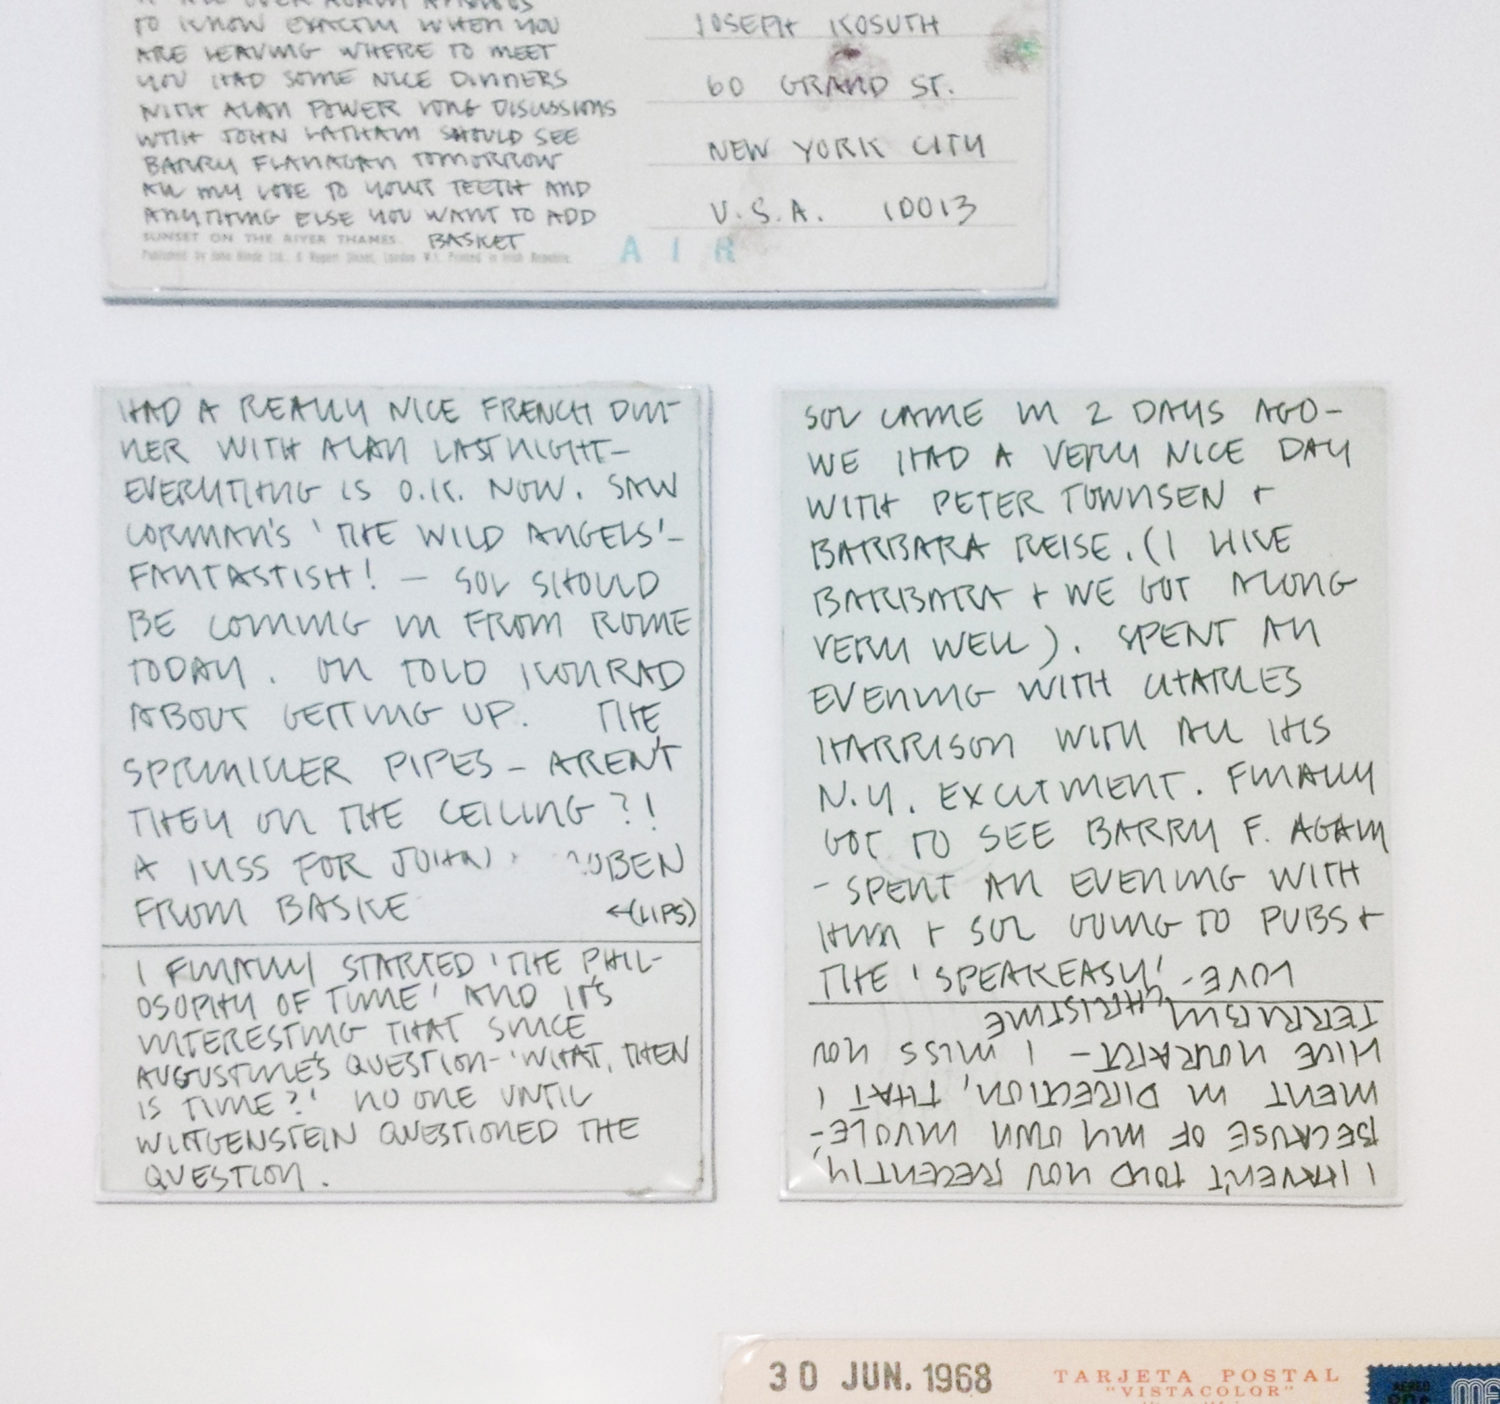 TO KNOW EXACTLY WHEN YOU
ARE LEAVING WHERE TO MEET
YOU HAD SOME NICE DINNERS
WITH ALAN POWER LONG DISCUSSIONS
WITH JOHN LATHAM SHOULD SEE
BARRY FLANAGAN TOMORROW
ALL MY LOVE TO YOUR TEETH AND
ANYTHING ELSE YOU WANT TO ADD
SUNSET ON THE RIVER THAMES. BASKET
Published by John Hinde Ltd., 6 Rupert Street, London W.1. Printed in Irish Republic.
JOSEPH KOSUTH
60 GRAND ST.
NEW YORK CITY
U.S.A. 10013
AIR
HAD A REALLY NICE FRENCH DIN-
NER WITH ALAN LAST NIGHT-
EVERYTHING IS O.K. NOW. SAW
CORMAN'S 'THE WILD ANGELS'-
FANTASTISH! - SOL SHOULD
BE COMMING IN FROM ROME
TODAY. TOLD KONRAD
ABOUT GETTING UP. THE
SPRINKLER PIPES - AREN'T
THEY ON THE CEILING?!
A KISS FOR
FROM BASKE ←(LIPS)
I FINALLY STARTED 'THE PHIL-
OSOPHY OF TIME' AND IT'S
INTERESTING THAT SINCE
AUGUSTINE'S QUESTION-'WHAT, THEN
IS TIME?' NO ONE UNTIL
WITTGENSTEIN QUESTIONED THE
QUESTION.
SOL CAME IN 2 DAYS AGO-
WE HAD A VERY NICE DAY
WITH PETER TOWNSEN +
BARBARA REISE. (I LIKE
BARBARA + WE GOT ALONG
VERY WELL). SPENT AN
EVENING WITH CHARLES
HARRISON WITH ALL HIS
N.Y. EXCITMENT. FINALLY
GOT TO SEE BARRY F. AGAIN
- SPENT AN EVENING WITH
HIM + SOL GOING TO PUBS +
THE 'SPEAKEASY'- LOVE
CHRISTINE
I HAVEN'T TOLD YOU RECENTLY,
BECAUSE OF MY OWN INVOLE-
MENT IN DIRECTION, THAT I
LIKE YOUR ART - I MISS YOU
TERRABLY
30 JUN. 1968
TARJETA POSTAL
"VISTACOLOR"
AEREO